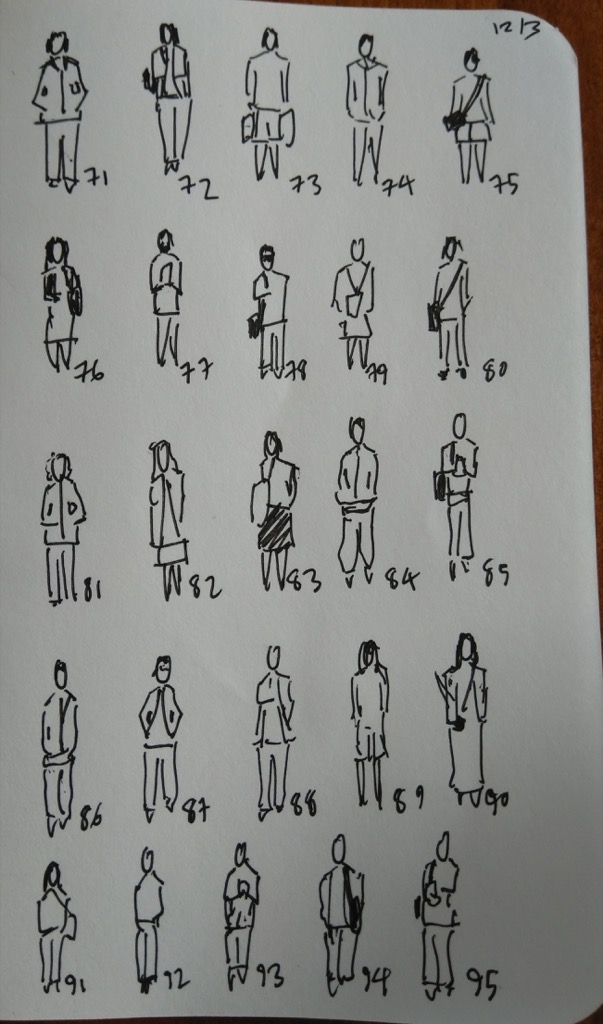 12/3
71 72 73 74 75
76 77 78 79 80
81 82 83 84 85
86 87 88 89 90
91 92 93 94 95